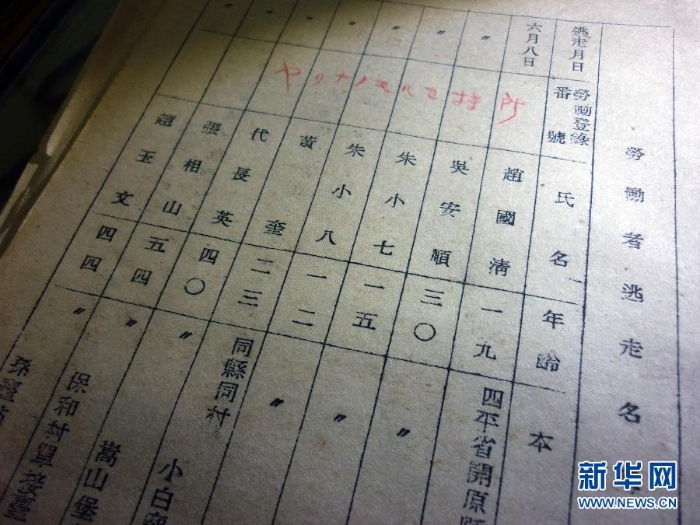 勞働者逃走名
逃走月日 勞働登錄番號 氏名 年齡 本
六月八日 趙國清 一九 四平省開原
〃 吳安順 三〇 〃
〃 朱小七 一五 〃
〃 朱小八 一二 〃
〃 黃奎 二三 同縣同村
〃 代長英 四〇 〃 小白
張相山 五四 〃 嵩山堡
趙玉文 四四 〃 保和村單
新华网
WWW.NEWS.CN